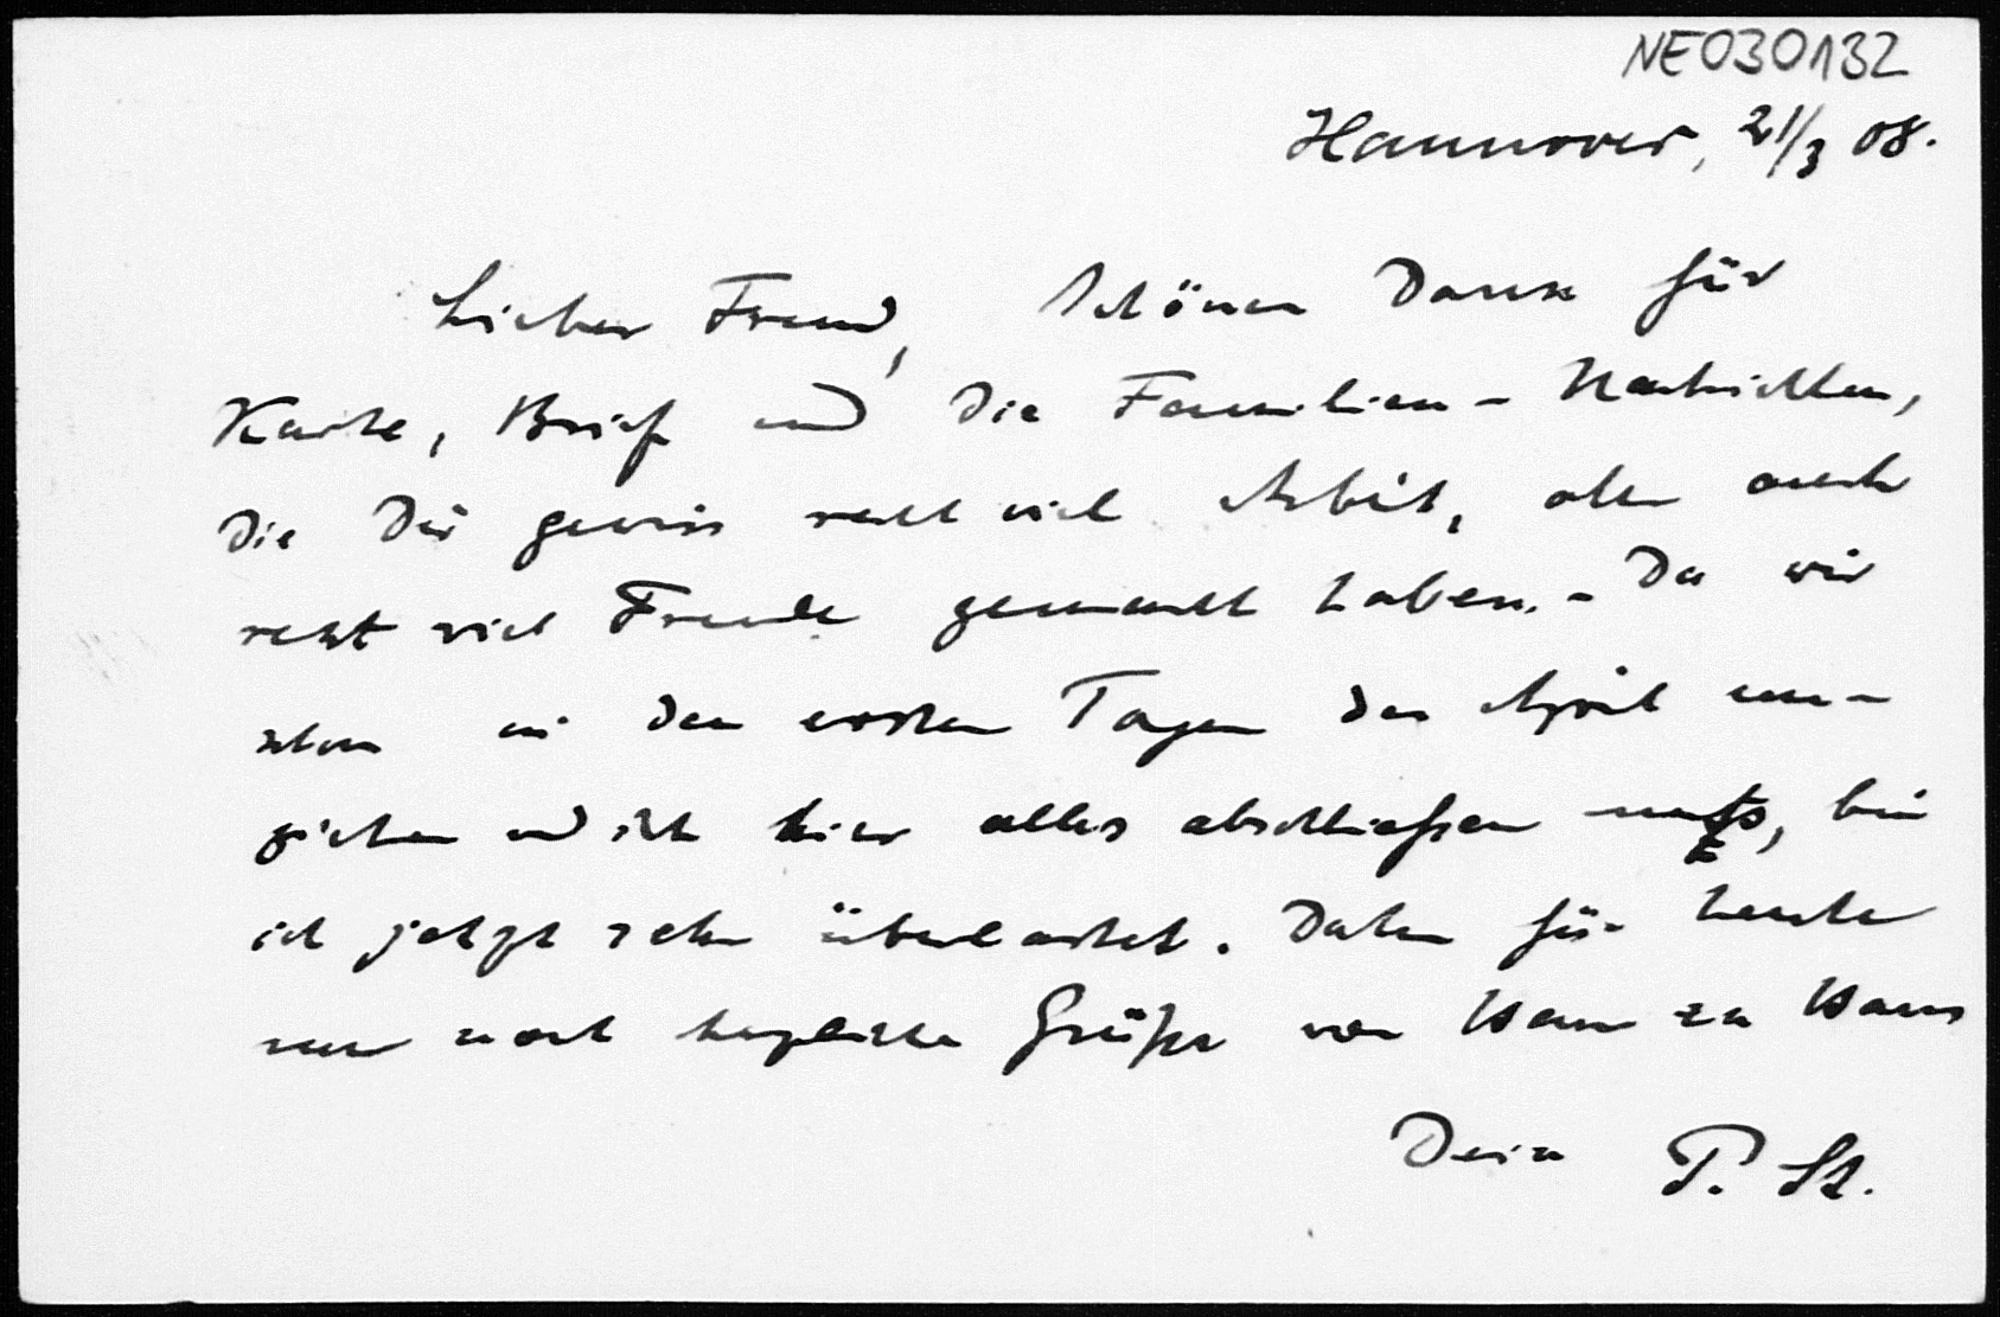 NE030132
Hannover, 21/3 08.
Lieber Freund, Schönen Dank für
Karte, Brief und die Familien-Nachrichten,
die Dir gewiss recht viel Arbeit, aber auch
recht viel Freude gemacht haben. - Da wir
schon in den ersten Tagen des April um-
ziehen und ich hier alles abschließen muß, bin
ich jetzt sehr überlastet. Daher für heute
nur noch herzliche Grüße von Haus zu Haus
Dein P. St.